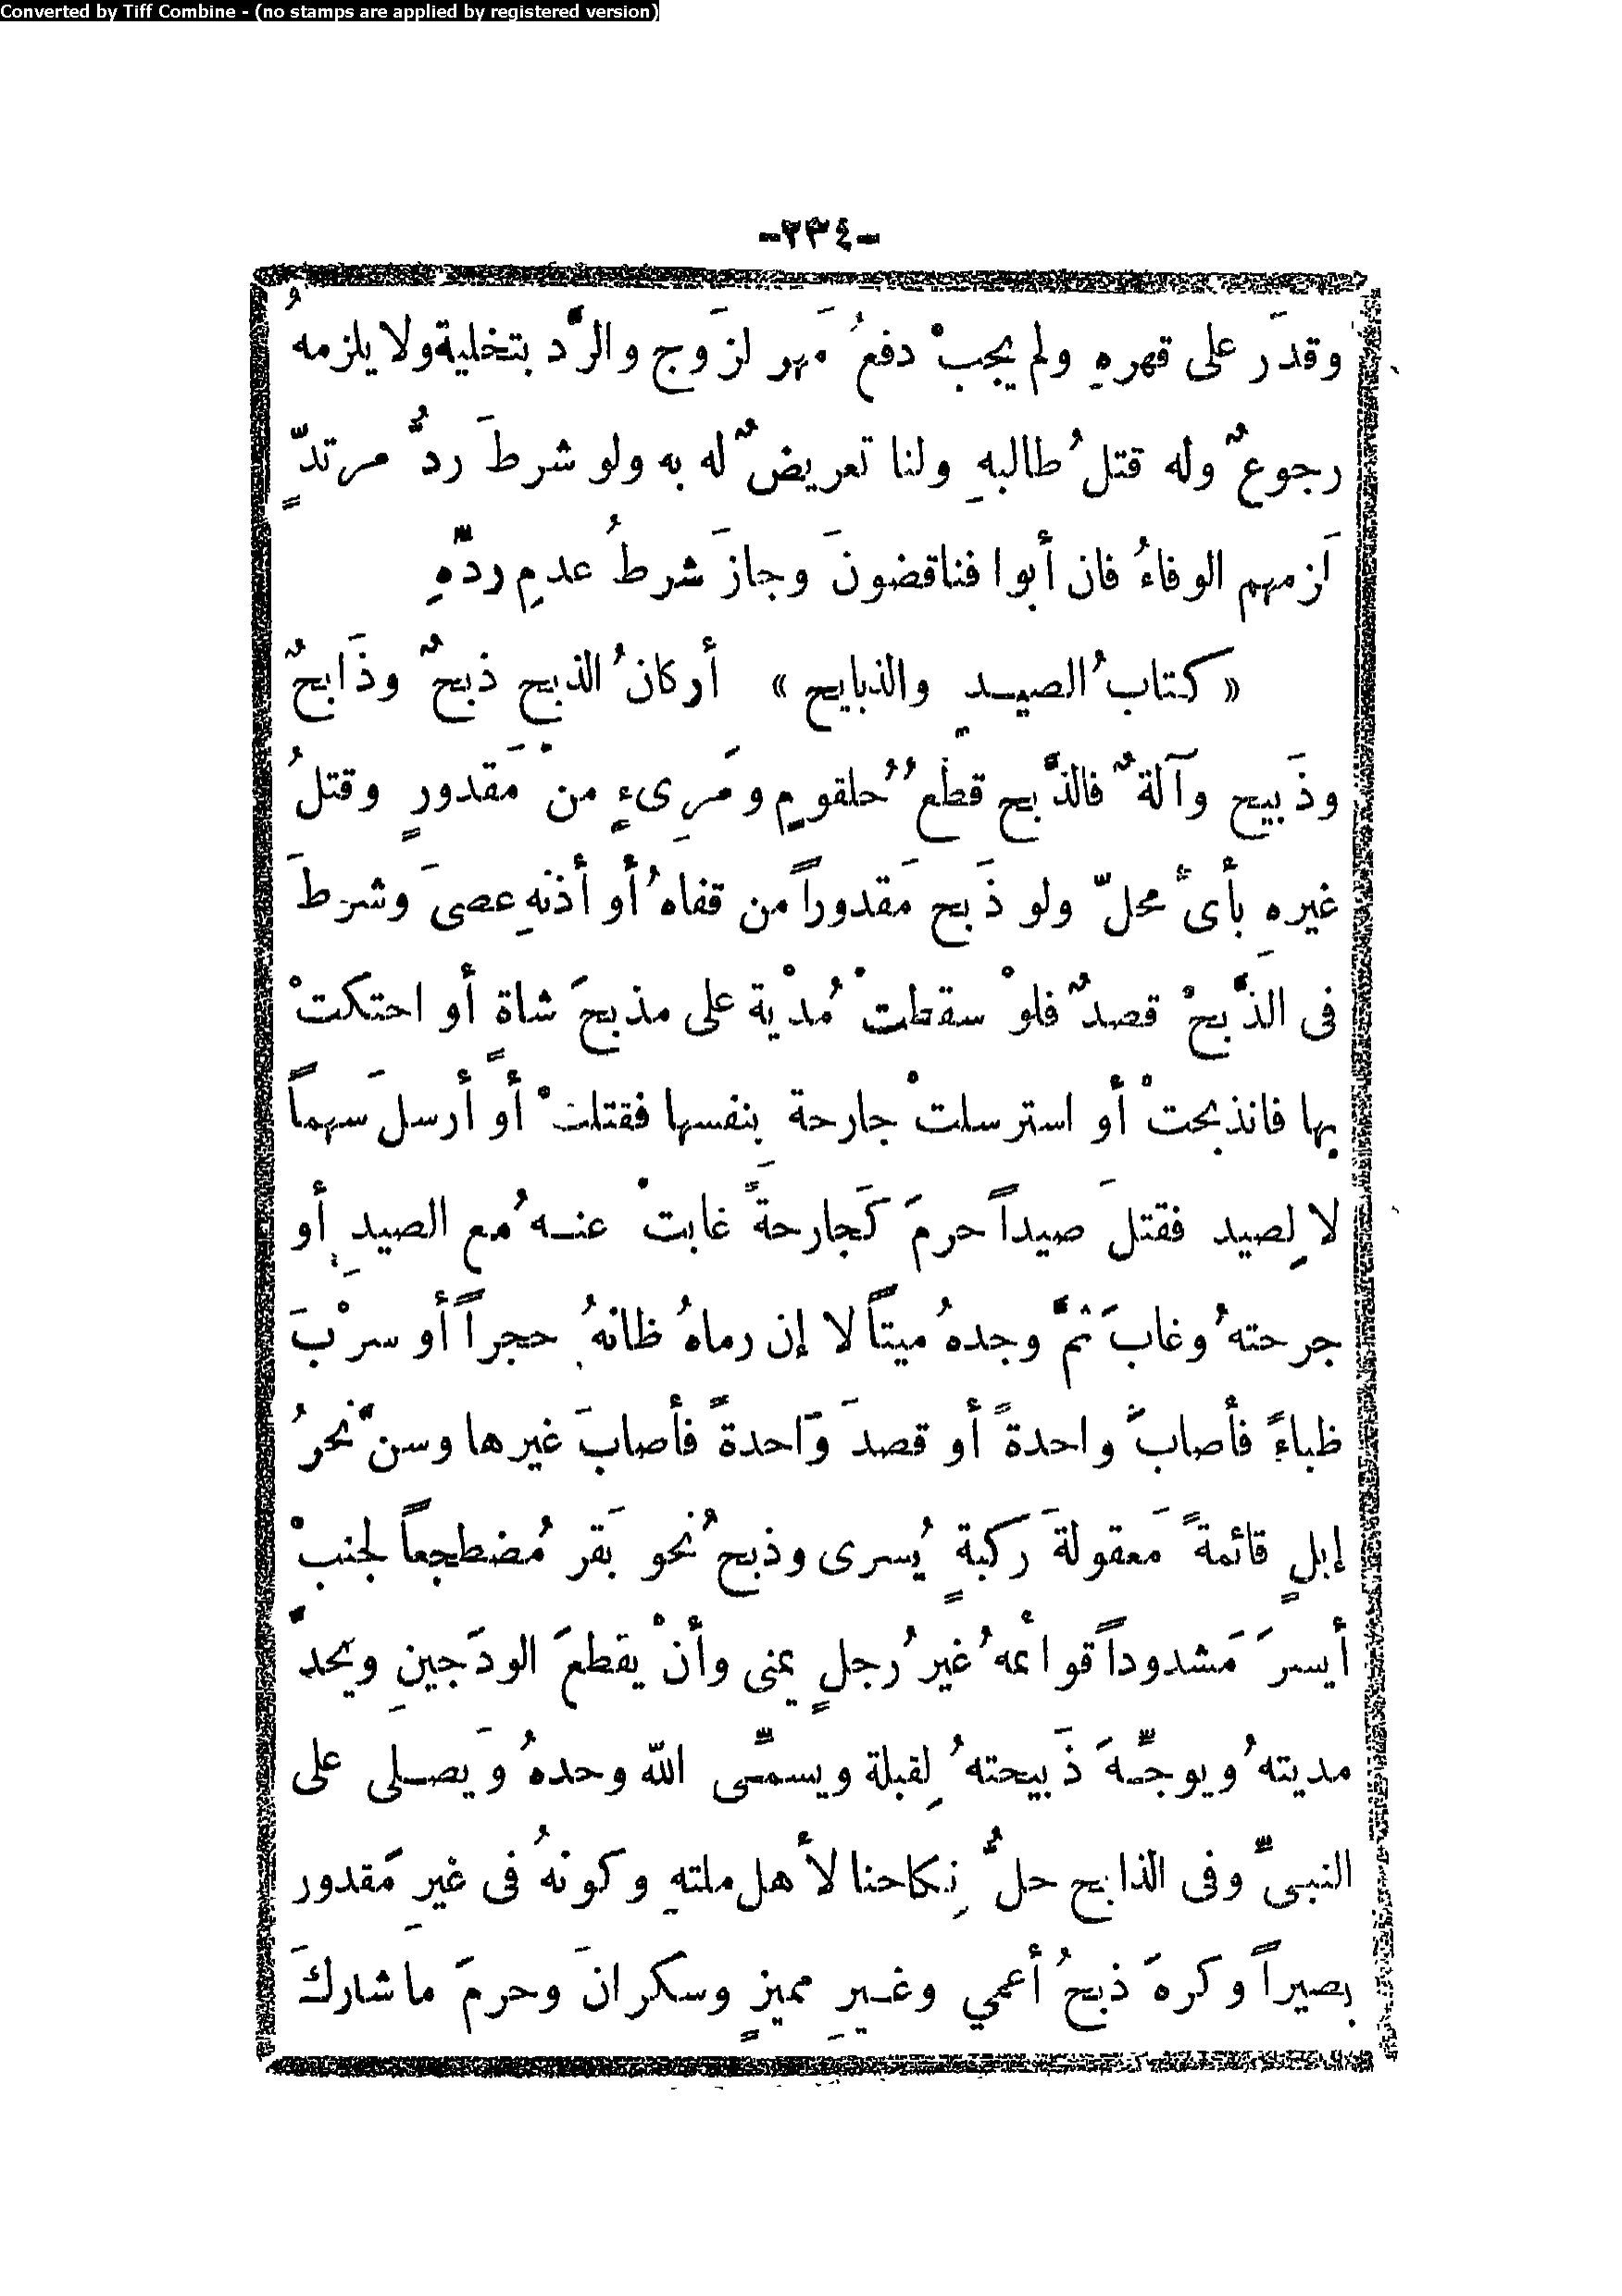 Converted by Tiff Combine - (no stamps are applied by registered version)
-٢٣٤-
وقدَر على قهرهِ ولم يجبْ دفعُ مَهر لزَوج والرَّد بتخلية ولا يلزمهُ
رجوعٌ وله قتلُ طالبهِ ولنا تعريضٌ له به ولو شرطَ ردُّ مرتدٍّ
لَزمهم الوفاءُ فان أبوا فناقضونَ وجازَ شرطُ عدمِ ردّهِ
« كتابُ الصيدِ والذبايح » أركانُ الذبح ذبحٌ وذَابحٌ
وذَبيح وآلةٌ فالذَّبح قطْعُ حُلقومٍ ومَرِىءٍ منْ مَقدورٍ وقتلُ
غيرهِ بأىِّ محلّ ولو ذَبح مَقدوراً من قفاهُ أو أذنهِ عصىَ وشرطَ
فى الذَّبحْ قصدٌ فلوْ سقطتْ مُدْية على مذبحَ شاةٍ أو احتكتْ
بها فانذبحتْ أو استرسلتْ جارحةً بنفسها فقتلتْ أوْ أرسلَ سهماً
لا لِصيد فقتلَ صيداً حرمَ كَجارحةً غابتْ عنهُ معَ الصيدِ أو
جرحتهُ وغابَ ثمَّ وجدهُ ميتاً لا إن رماهُ ظانهُ حجراً أو سرْبَ
ظباءً فأصابَ واحدةً أو قصدَ وَاحدةً فأصابَ غيرها وسنَّ نحرُ
إبلٍ قائمةً مَعقولةَ رَكبةٍ يُسرى وذبحُ نحو بَقر مُضطجعاً لجنبْ
أيسرَ مَشدوداً قوائمهُ غيرُ رجلٍ يمنى وأنْ يقطعَ الودَجينِ ويحدَّ
مديتهُ ويوجّهَ ذَبيحتهُ لِقبلة ويسمّى الله وحدهُ وَيصلى على
النبىِّ وفى الذابح حلُّ نِكاحنا لأهل ملتهِ وكونهُ فى غيرِ مَقدور
بصيراً وكرهَ ذبحُ أعمي وغيرِ مميزٍ وسكرانَ وحرمَ ما شاركَ